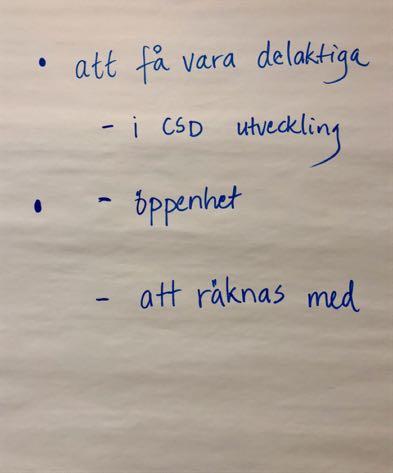 • att få vara delaktiga
- i CSD utveckling
• - öppenhet
- att räknas med